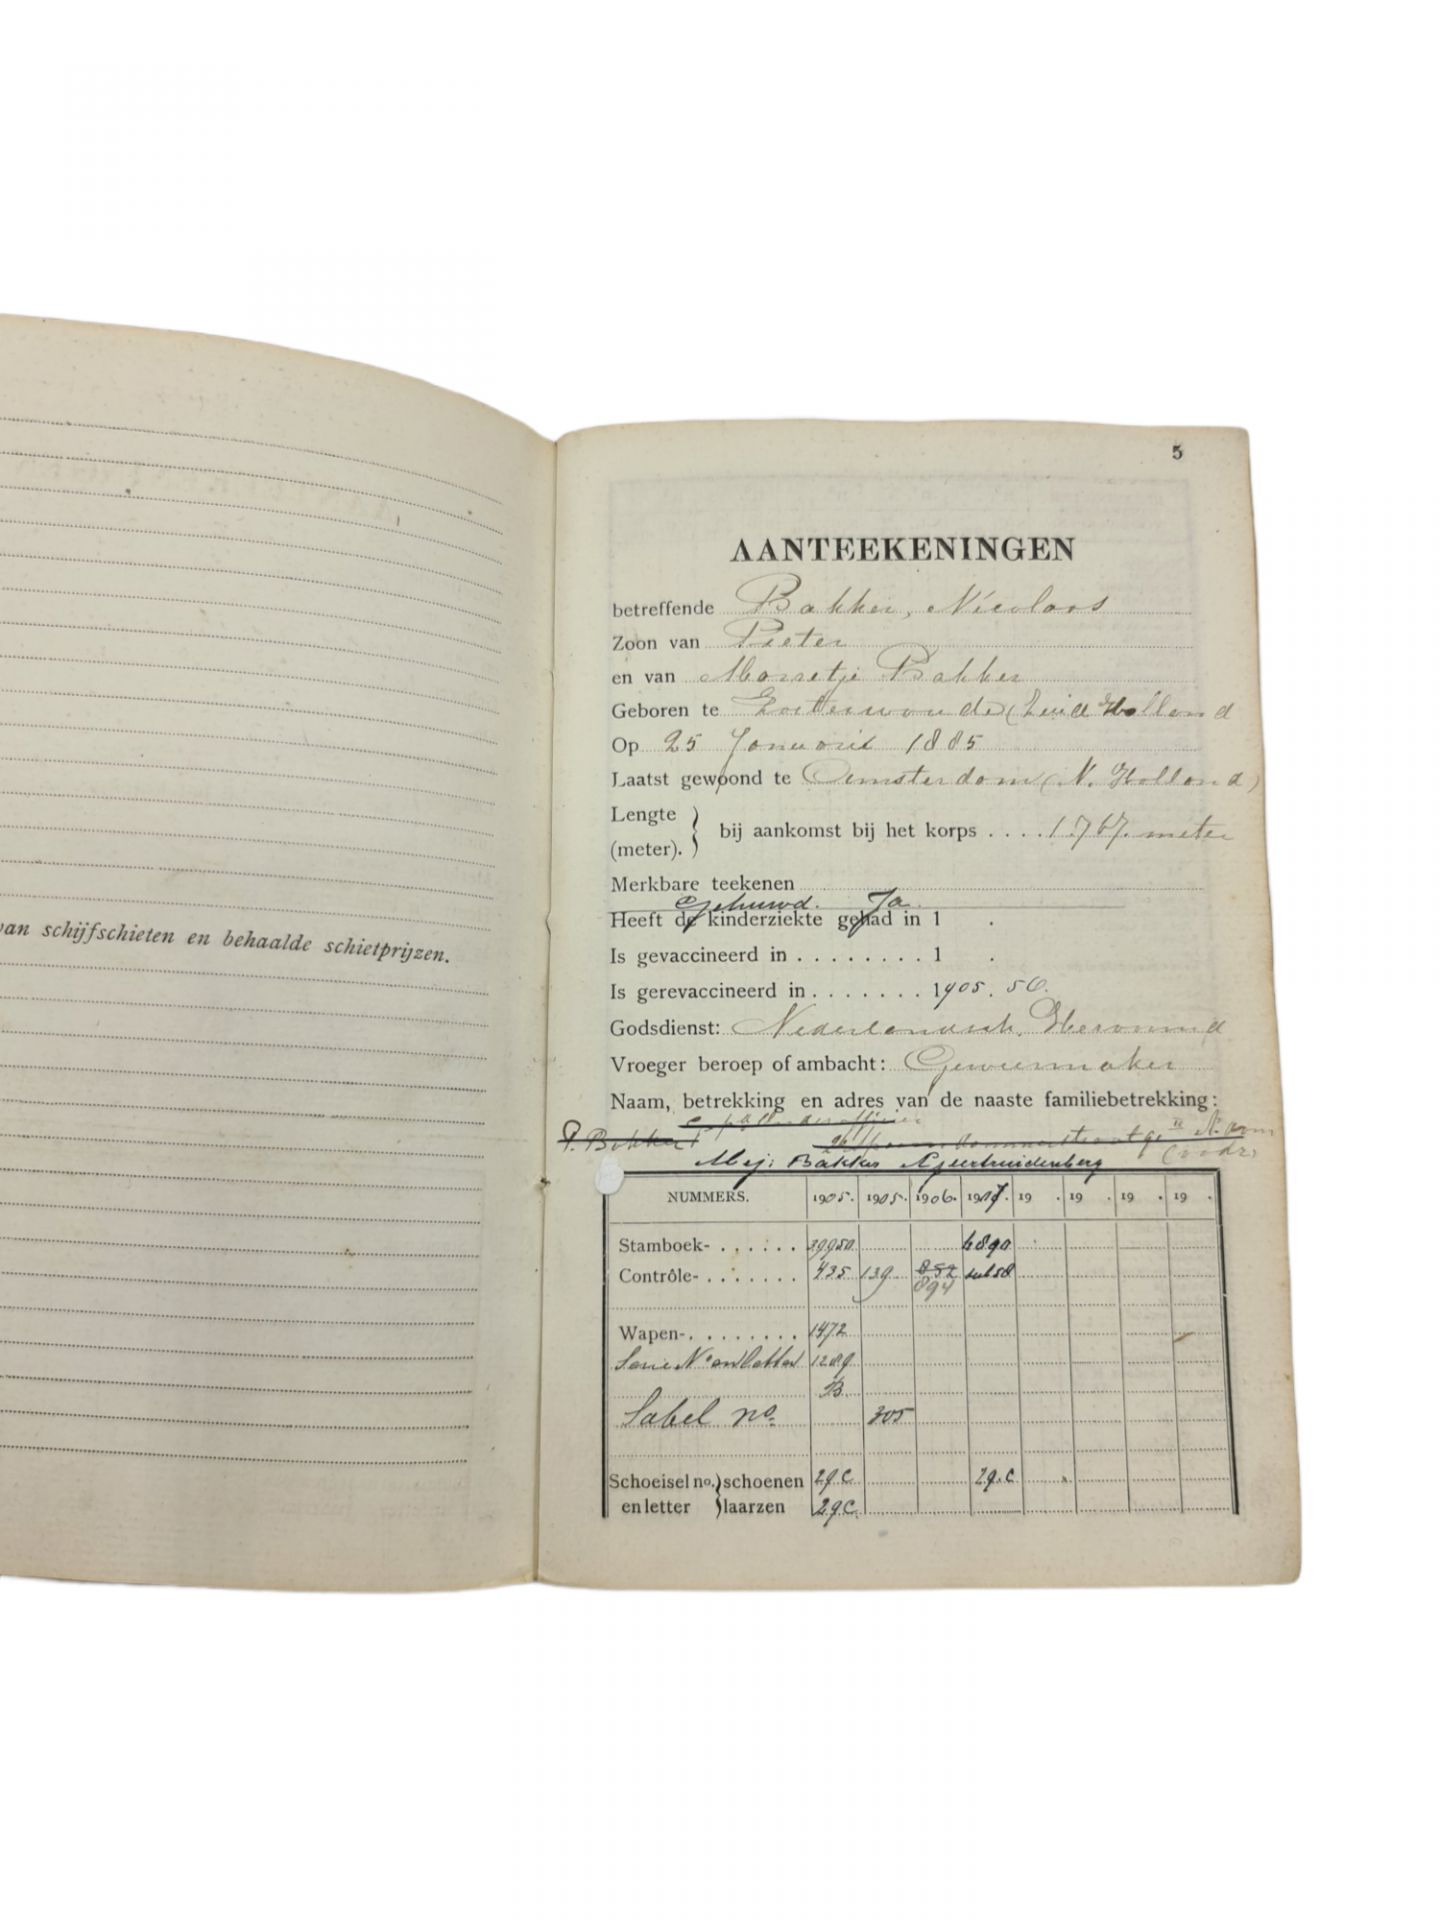 van schijfschieten en behaalde schietprijzen.
5
AANTEEKENINGEN
betreffende Bakker, Nicolaas
Zoon van Pieter
en van Marretje Bakker
Geboren te Zoeterwoude (Zuid Holland
Op 25 Januari 1885
Laatst gewoond te Amsterdam (N. Holland)
Lengte (meter). } bij aankomst bij het korps .... 1.767. meter
Merkbare teekenen
Gehuwd. Ja
Heeft de kinderziekte gehad in 1 .
Is gevaccineerd in ........ 1 .
Is gerevaccineerd in ....... 1905.
Godsdienst: Nederlandsch Hervormd
Vroeger beroep of ambacht: Geweermaker
Naam, betrekking en adres van de naaste familiebetrekking:
P. Bakker
Mej: Bakker Geertruidenberg
NUMMERS. 1905. 1905. 1906. 1907. 19 . 19 . 19 . 19 .
Stamboek- ...... 39950 6890
Contrôle- ....... 435 139 852
894
Wapen- ........ 1472
Serie No en letter 1289
B
Sabel no. 305
Schoeisel no. } schoenen 29 C 29. C
en letter } laarzen 29 C